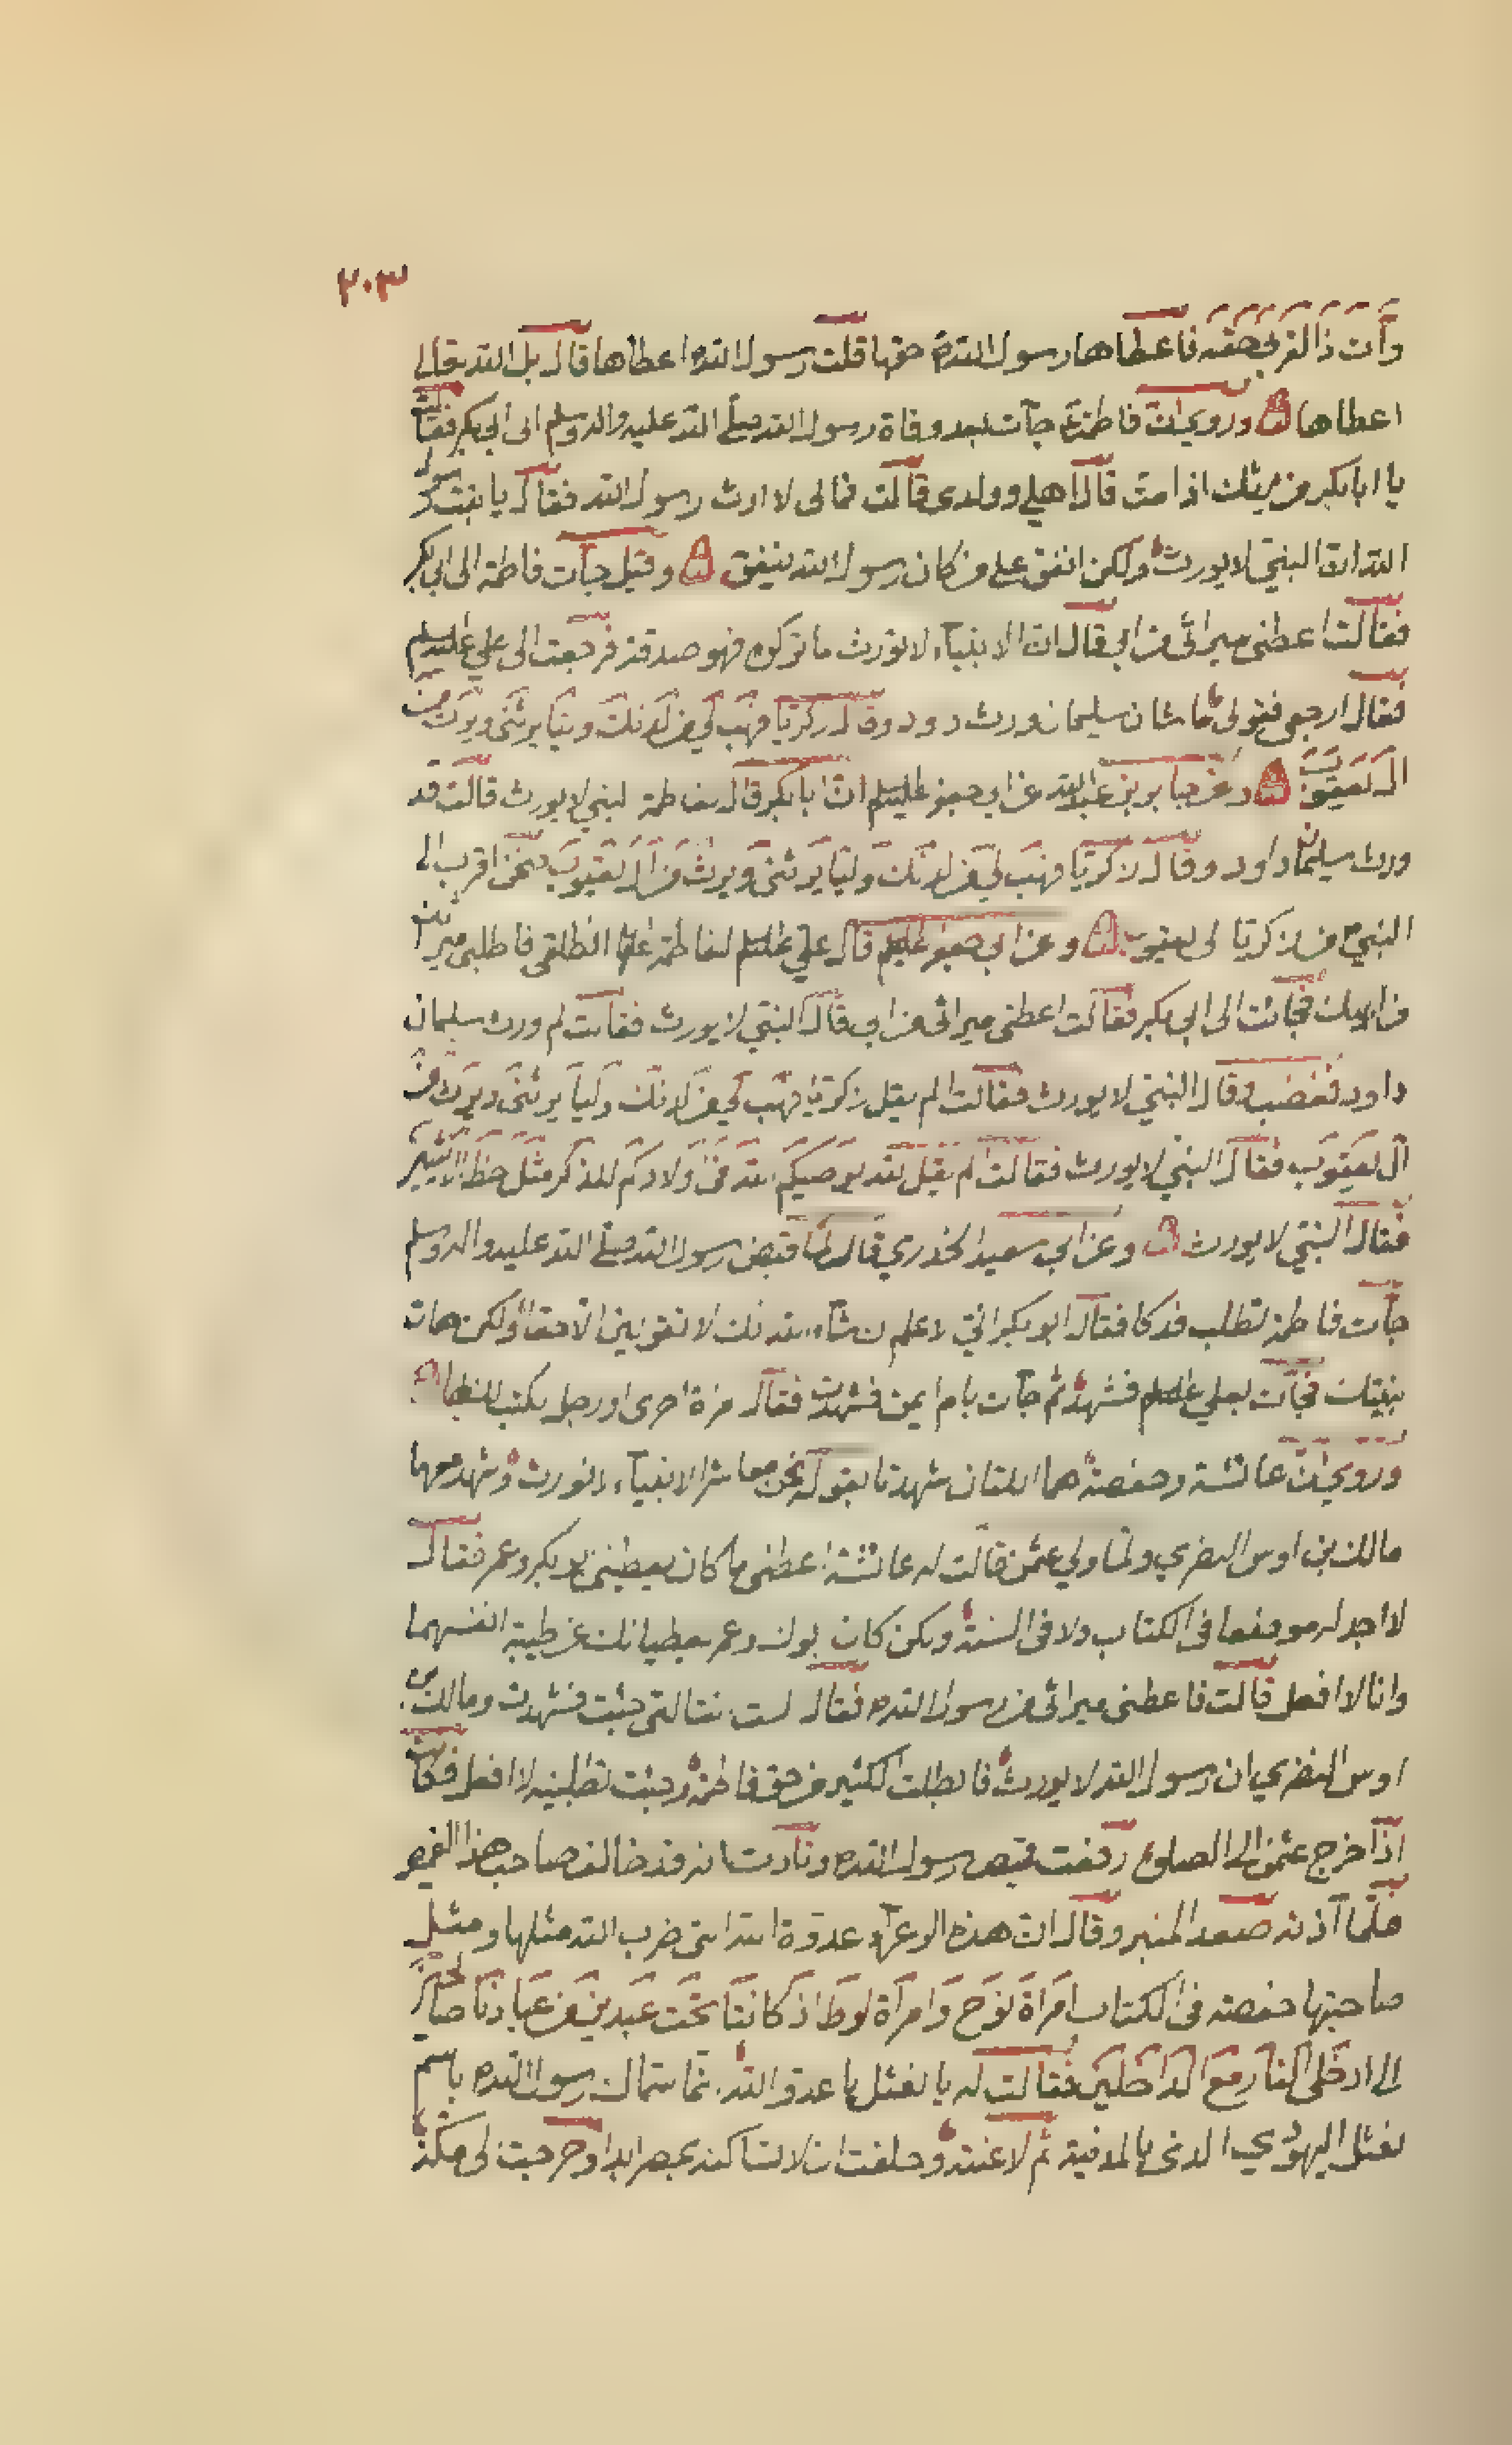 ٢٠٣
وآت ذا القربى حقه فاعطاها رسول الله ص حقها قلت رسول الله ص اعطاها قال بل الله تعالى
اعطاها وروي ان فاطمة ع جآت بعد وفاة رسول الله صلى الله عليه واله وسلم الى ابي بكر فقالت
يا ابا بكر من يرثك اذا مت قال اهلي وولدى قالت فمالى لا ارث رسول الله فقال يا بنت رسول
الله ان النبي لا يورث ولكن انفق على من كان رسول الله ينفق وقيل جآت فاطمة الى ابي بكر
فقالت اعطنى ميراثى من ابي قال ان الانبيآء لا تورث ما تركوه فهو صدقة فرجعت الى علي عليه السلم
فقال ارجعي فقولى ما شان سليمان ورث داود وقال زكريا فهب لي من لدنك وليا يرثنى ويرث من
ال يعقوب وعن جابر بن عبد الله عن ابي جعفر عليه السلم ان ابا بكر قال لفاطمة النبي لا يورث قالت قد
ورث سليمان داود وقال زكريا فهب لي من لدنك وليا يرثنى ويرث من ال يعقوب فنحن اقرب الى
النبي ص من زكريا الى يعقوب وعن ابي جعفر عليه السلم قال علي عليه السلم لفاطمة عليها انطلقى فاطلبى ميراثك
من ابيك فجائت الى ابي بكر فقالت اعطنى ميراثى من ابي قال النبي لا يورث فقالت الم ورث سليمان
داود فغضب وقال النبي لا يورث فقالت الم يقل زكريا فهب لي من لدنك وليا يرثنى ويرث من
آل يعقوب فقال النبي لا يورث فقالت الم يقل الله يوصيكم الله فى اولادكم للذكر مثل حظ الانثيين
فقال النبي لا يورث وعن ابي سعيد الخدري قال لما قبض رسول الله صلى الله عليه واله وسلم
جآت فاطمة تطلب فدكا فقال ابو بكر اني لاعلم ان شآء الله انك لا تقولين الا حقا ولكن هات
بينتك فجآت بعلي عليه السلم فشهد ثم جآت بام ايمن فشهدت فقال امراة اخرى او رجل يكتب لك بها
وروي ان عائشة وحفصة هما اللتان شهدتا بقوله نحن معاشر الانبيآء لا نورث وشهد معهما
مالك بن اوس النضري ولما ولي عثمن قالت له عائشة اعطنى ما كان يعطينى ابو بكر وعمر فقال
لا اجد له موضعا فى الكتاب ولا فى السنة ولكن كان ابوك وعمر يعطيانك عن طيبة انفسهما
وانا لا افعل قالت فاعطنى ميراثى من رسول الله ص فقال الست انت التى جئت فشهدت ومالك بن
اوس النضري ان رسول الله لا يورث فابطلت الكثير من حق فاطمة وجئت تطلبينه لا افعل فكانت
اذا خرج عثمن الى الصلوة رفعت قميص رسول الله ص ونادت انه قد خالف صاحب هذا القميص
فلما آذته صعد المنبر وقال ان هذه الزعرآء عدوة الله التى ضرب الله مثلها ومثل
صاحبتها حفصة فى الكتاب امراة نوح وامرآة لوط اذ كانتا تحت عبدين من عبادنا صالحين
الى ادخلى النار مع الداخلين فقالت له يا نعثل يا عدو الله انما سماك رسول الله ص باسم
نعثل اليهودي الذى باليمن فيه ثم لاعنته وحلفت ان لا تساكنه بمصر ابدا وخرجت الى مكة